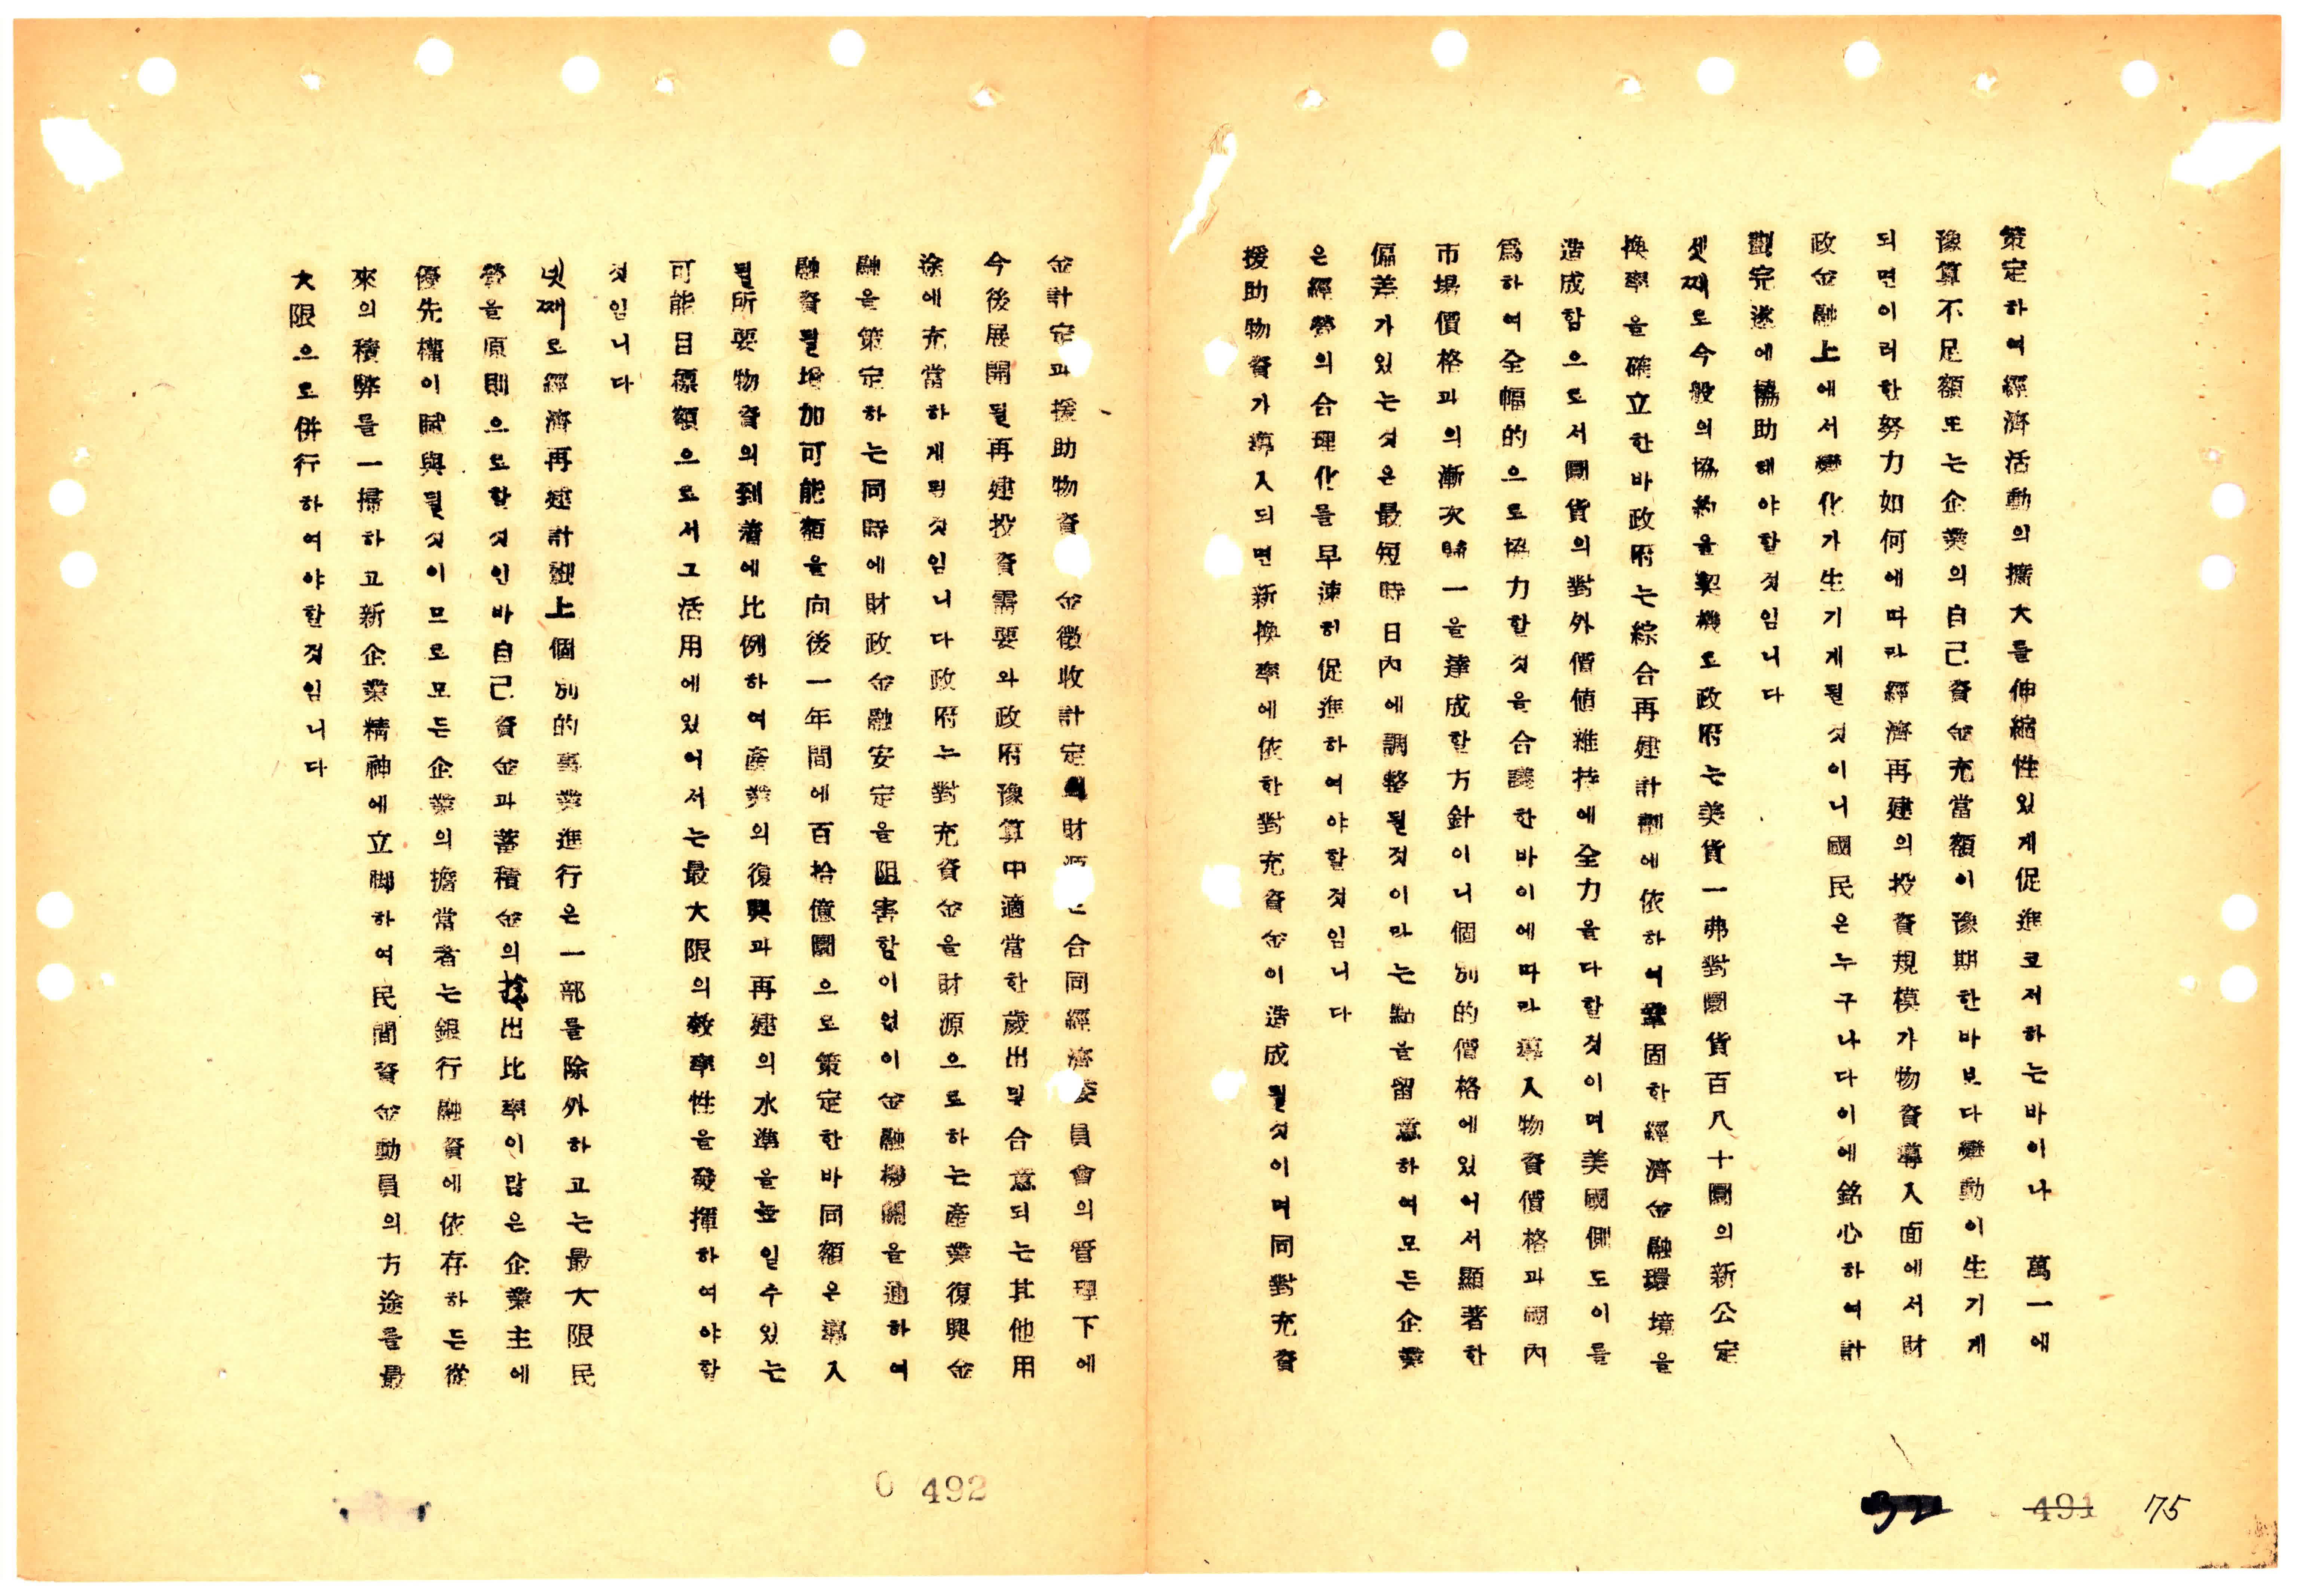 策定하여經濟活動의擴大를伸縮性있게促進코저하는바이나 萬一에
豫算不足額또는企業의自己資金充當額이豫期한바보다變動이生기게
되면이러한努力如何에따라經濟再建의投資規模가物資導入面에서財
政金融上에서變化가生기게될것이니國民은누구나다이에銘心하여計
劃完遂에協助해야할것임니다
셋째로今般의協約을契機로政府는美貨一弗對圜貨百八十圜의新公定
換率을確立한바政府는綜合再建計劃에依하여鞏固한經濟金融環境을
造成함으로서圜貨의對外價値維持에全力을다할것이며美國側도이를
爲하여全幅的으로協力할것을合議한바이에따라導入物資價格과國內
市場價格과의漸次歸一을達成할方針이니個別的價格에있어서顯著한
偏差가있는것은最短時日內에調整될것이라는點을留意하여모든企業
은經營의合理化를早速히促進하여야할것임니다
援助物資가導入되면新換率에依한對充資金이造成될것이며同對充資
金計定과援助物資 金徵收計定의財源 合同經濟委員會의管理下에
今後展開될再建投資需要와政府豫算中適當한歲出및合意되는其他用
途에充當하게될것임니다政府는對充資金을財源으로하는產業復興金
融을策定하는同時에財政金融安定을阻害함이없이金融機關을通하여
融資될增加可能額을向後一年間에百拾億圜으로策定한바同額은導入
될所要物資의到着에比例하여產業의復興과再建의水準을높일수있는
可能目標額으로서그活用에있어서는最大限의效率性을發揮하여야할
것임니다
넷째로經濟再建計劃上個別的事業進行은一部를除外하고는最大限民
營을原則으로할것인바自己資金과蓄積金의捻出比率이많은企業主에
優先權이賦與될것이므로모든企業의擔當者는銀行融資에依存하든從
來의積弊를一掃하고新企業精神에立脚하여民間資金動員의方途를最
大限으로併行하여야할것임니다
0 492
491 75